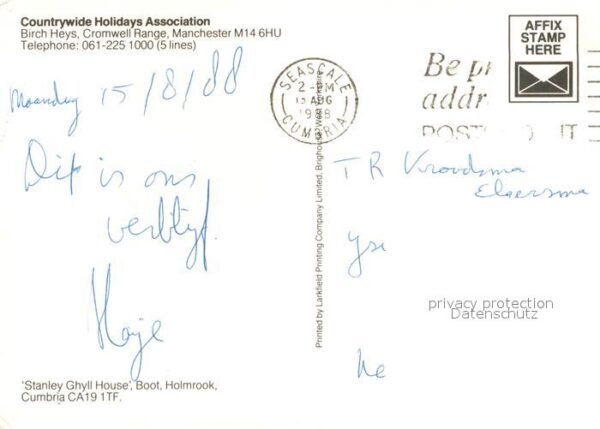 Countrywide Holidays Association
Birch Heys, Cromwell Range, Manchester M14 6HU
Telephone: 061-225 1000 (5 lines)
Maandag 15/8/88
Dit is ons
verblijf.
Printed by Larkfield Printing Company Limited, Brighouse, West Yorkshire
AFFIX
STAMP
HERE
SEASCALE
2-PM
15 AUG
1988
CUMBRIA
Be pr
addr
POSTC IT
T R
privacy protection
Datenschutz
'Stanley Ghyll House', Boot, Holmrook,
Cumbria CA19 1TF.